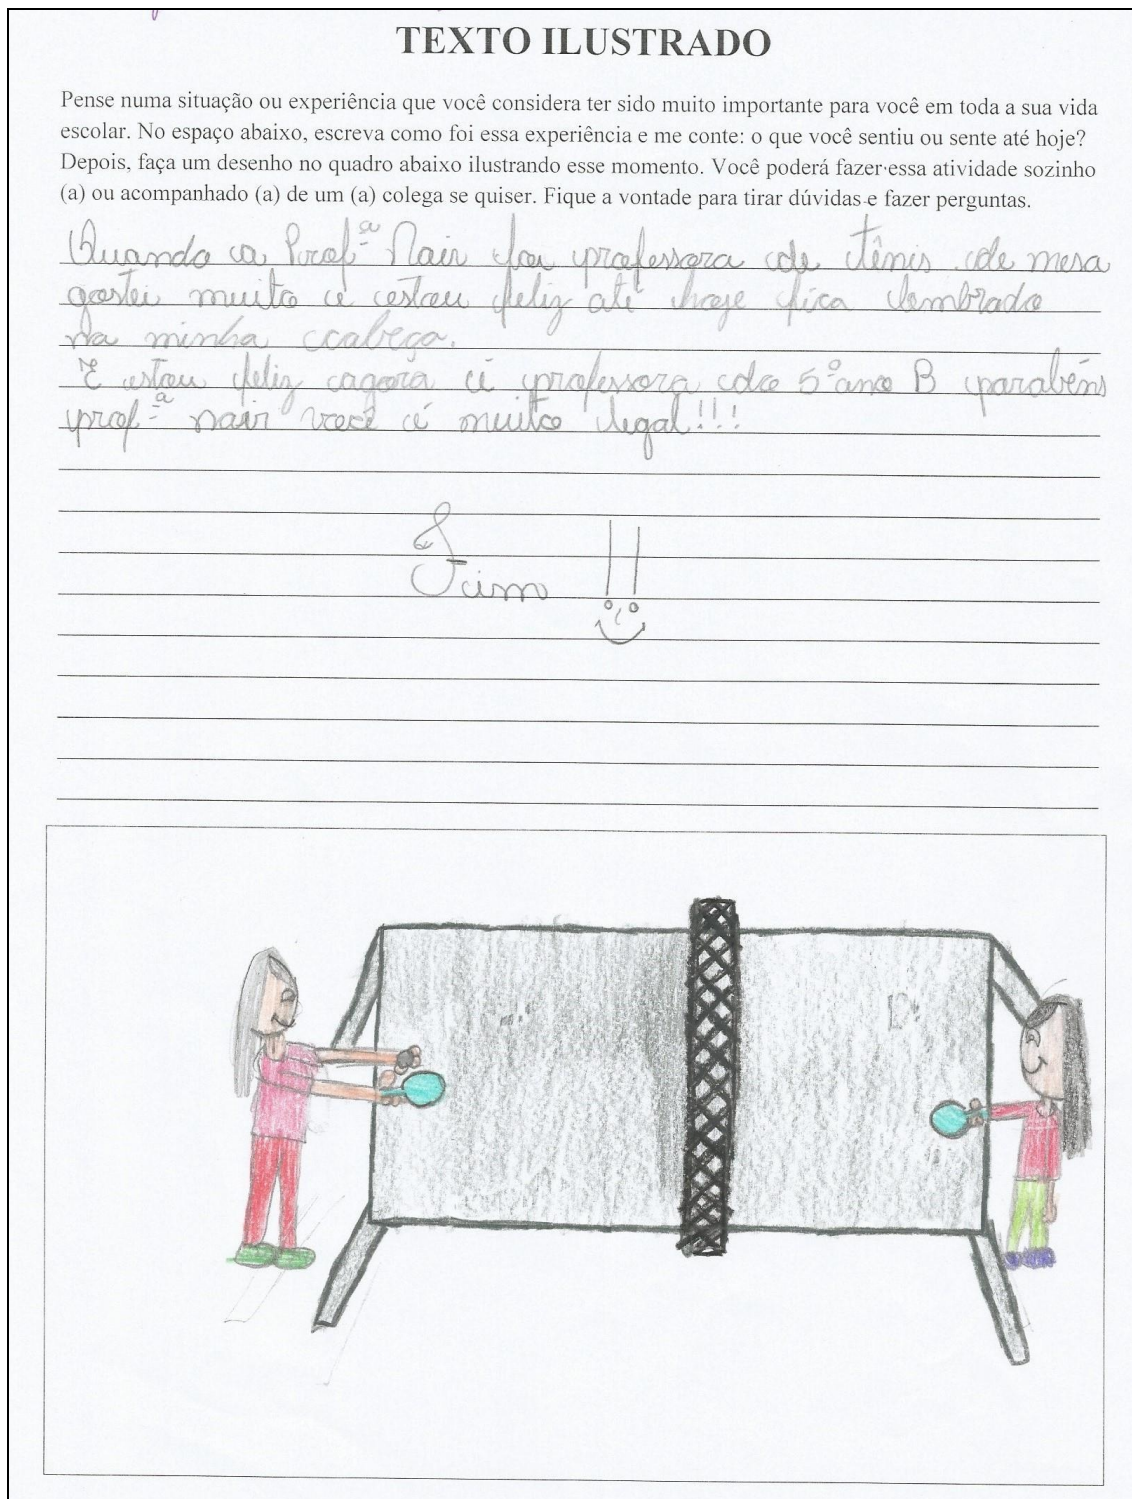 TEXTO ILUSTRADO
Pense numa situação ou experiência que você considera ter sido muito importante para você em toda a sua vida
escolar. No espaço abaixo, escreva como foi essa experiência e me conte: o que você sentiu ou sente até hoje?
Depois, faça um desenho no quadro abaixo ilustrando esse momento. Você poderá fazer essa atividade sozinho
(a) ou acompanhado (a) de um (a) colega se quiser. Fique a vontade para tirar dúvidas e fazer perguntas.
Quando a Profª Nair foi professora de tênis de mesa
gostei muito e estou feliz até hoje fica lembrado
na minha cabeça.
E estou feliz agora é professora do 5º ano B parabéns
profª nair você é muito legal!!!
Fim !!